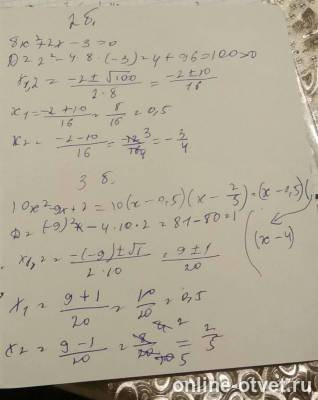 2 б.
8x²+2x-3=0
D=2²-4·8·(-3)=4+96=100>0
x₁,₂ = (-2±√100)/(2·8) = (-2±10)/16
x₁ = (-2+10)/16 = 8/16 = 0,5
x₂ = (-2-10)/16 = -12/16 = -3/4
3 б.
10x²-9x+2=10(x-0,5)(x-2/5)=(x-0,5)
D=(-9)²-4·10·2=81-80=1
(x-4)
x₁,₂ = (-(-9)±√1)/(2·10) = (9±1)/20
x₁ = (9+1)/20 = 10/20 = 0,5
x₂ = (9-1)/20 = 8/20 = 2/5
online-otvet.ru